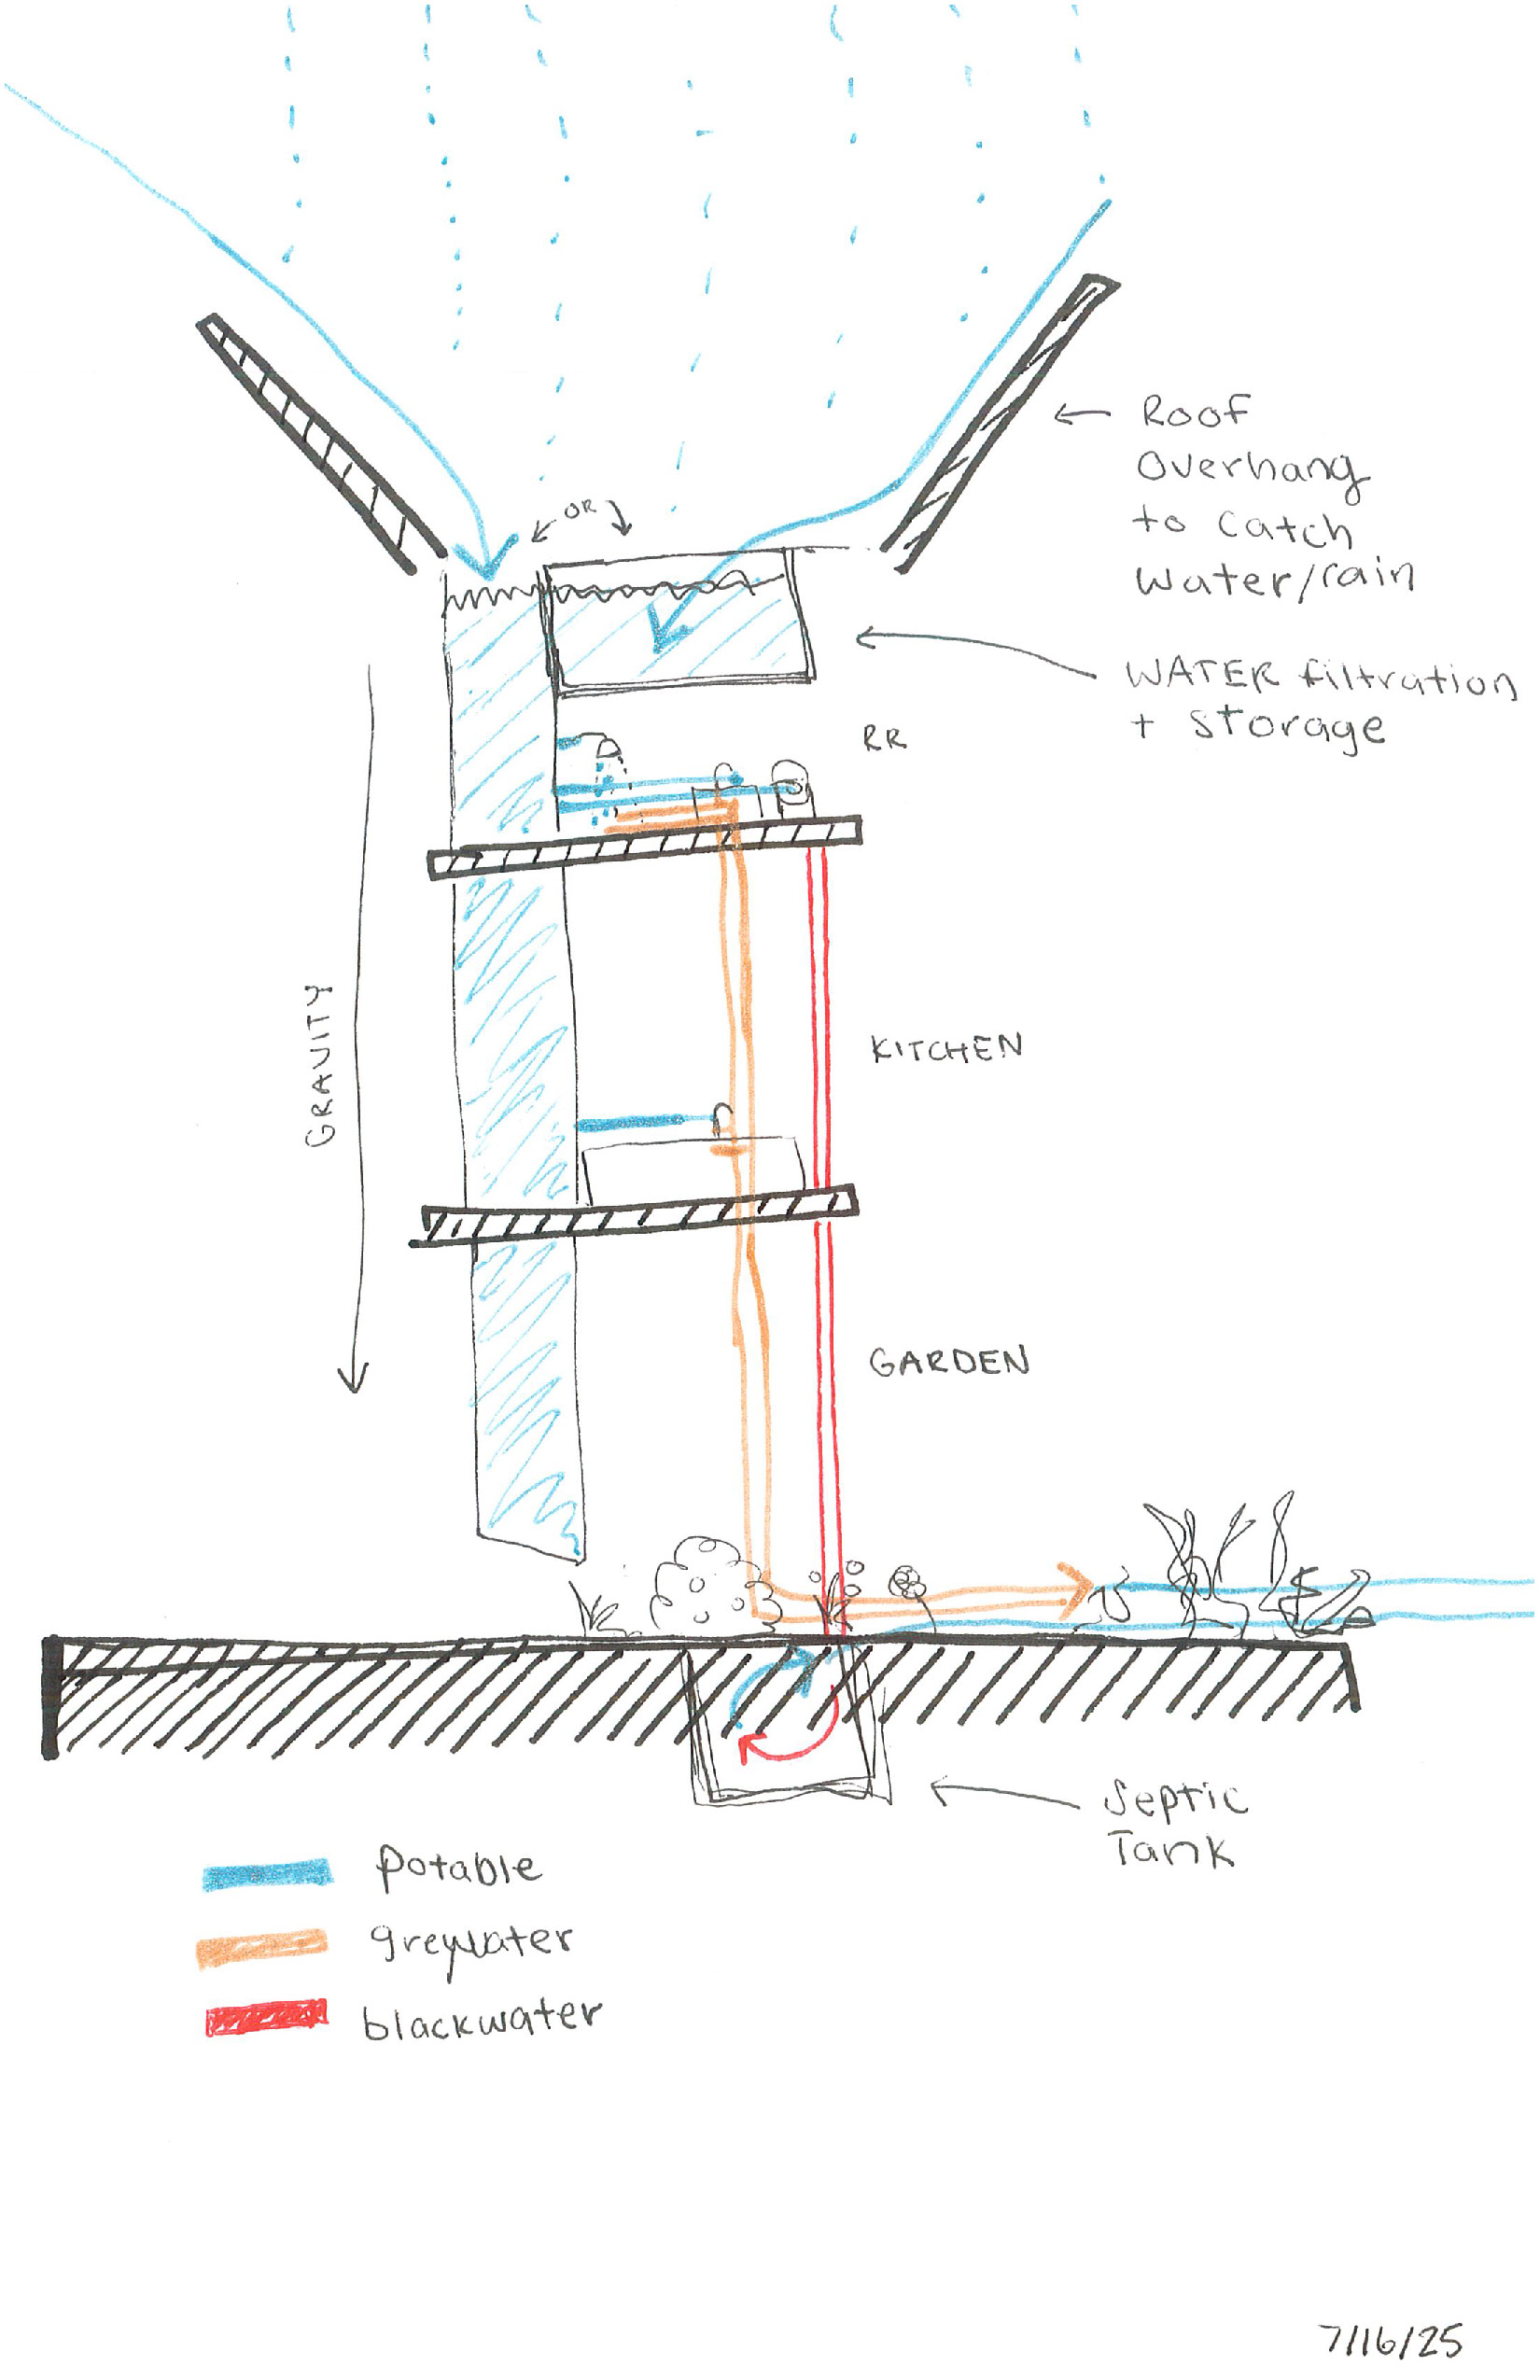 Roof
Overhang
to catch
water/rain
← OR ↘
WATER filtration
+ Storage
RR
GRAVITY
KITCHEN
GARDEN
Septic
Tank
potable
greywater
blackwater
7/16/25